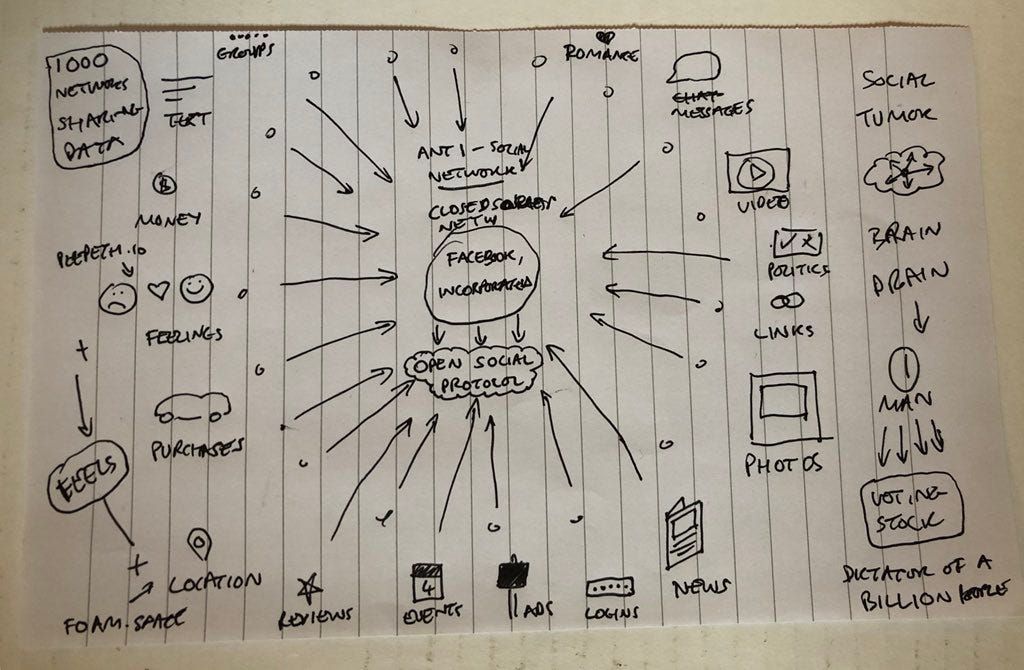 1000
NETWORKS
SHARING
DATA
TEXT
GROUPS
ROMANCE
MESSAGES
SOCIAL
TUMOR
ANTI-SOCIAL
NETWORK
CLOSED
NETW
MONEY
VIDEO
PEEPETH.IO
FACEBOOK,
INCORPORATED
POLITICS
BRAIN
DRAIN
FEELINGS
LINKS
OPEN SOCIAL
PROTOCOL
1
MAN
PURCHASES
PHOTOS
FEELS
VOTING
STOCK
LOCATION
FOAM.SPACE
REVIEWS
4
EVENTS
ADS
LOGINS
NEWS
DICTATOR OF A
BILLION PEOPLE